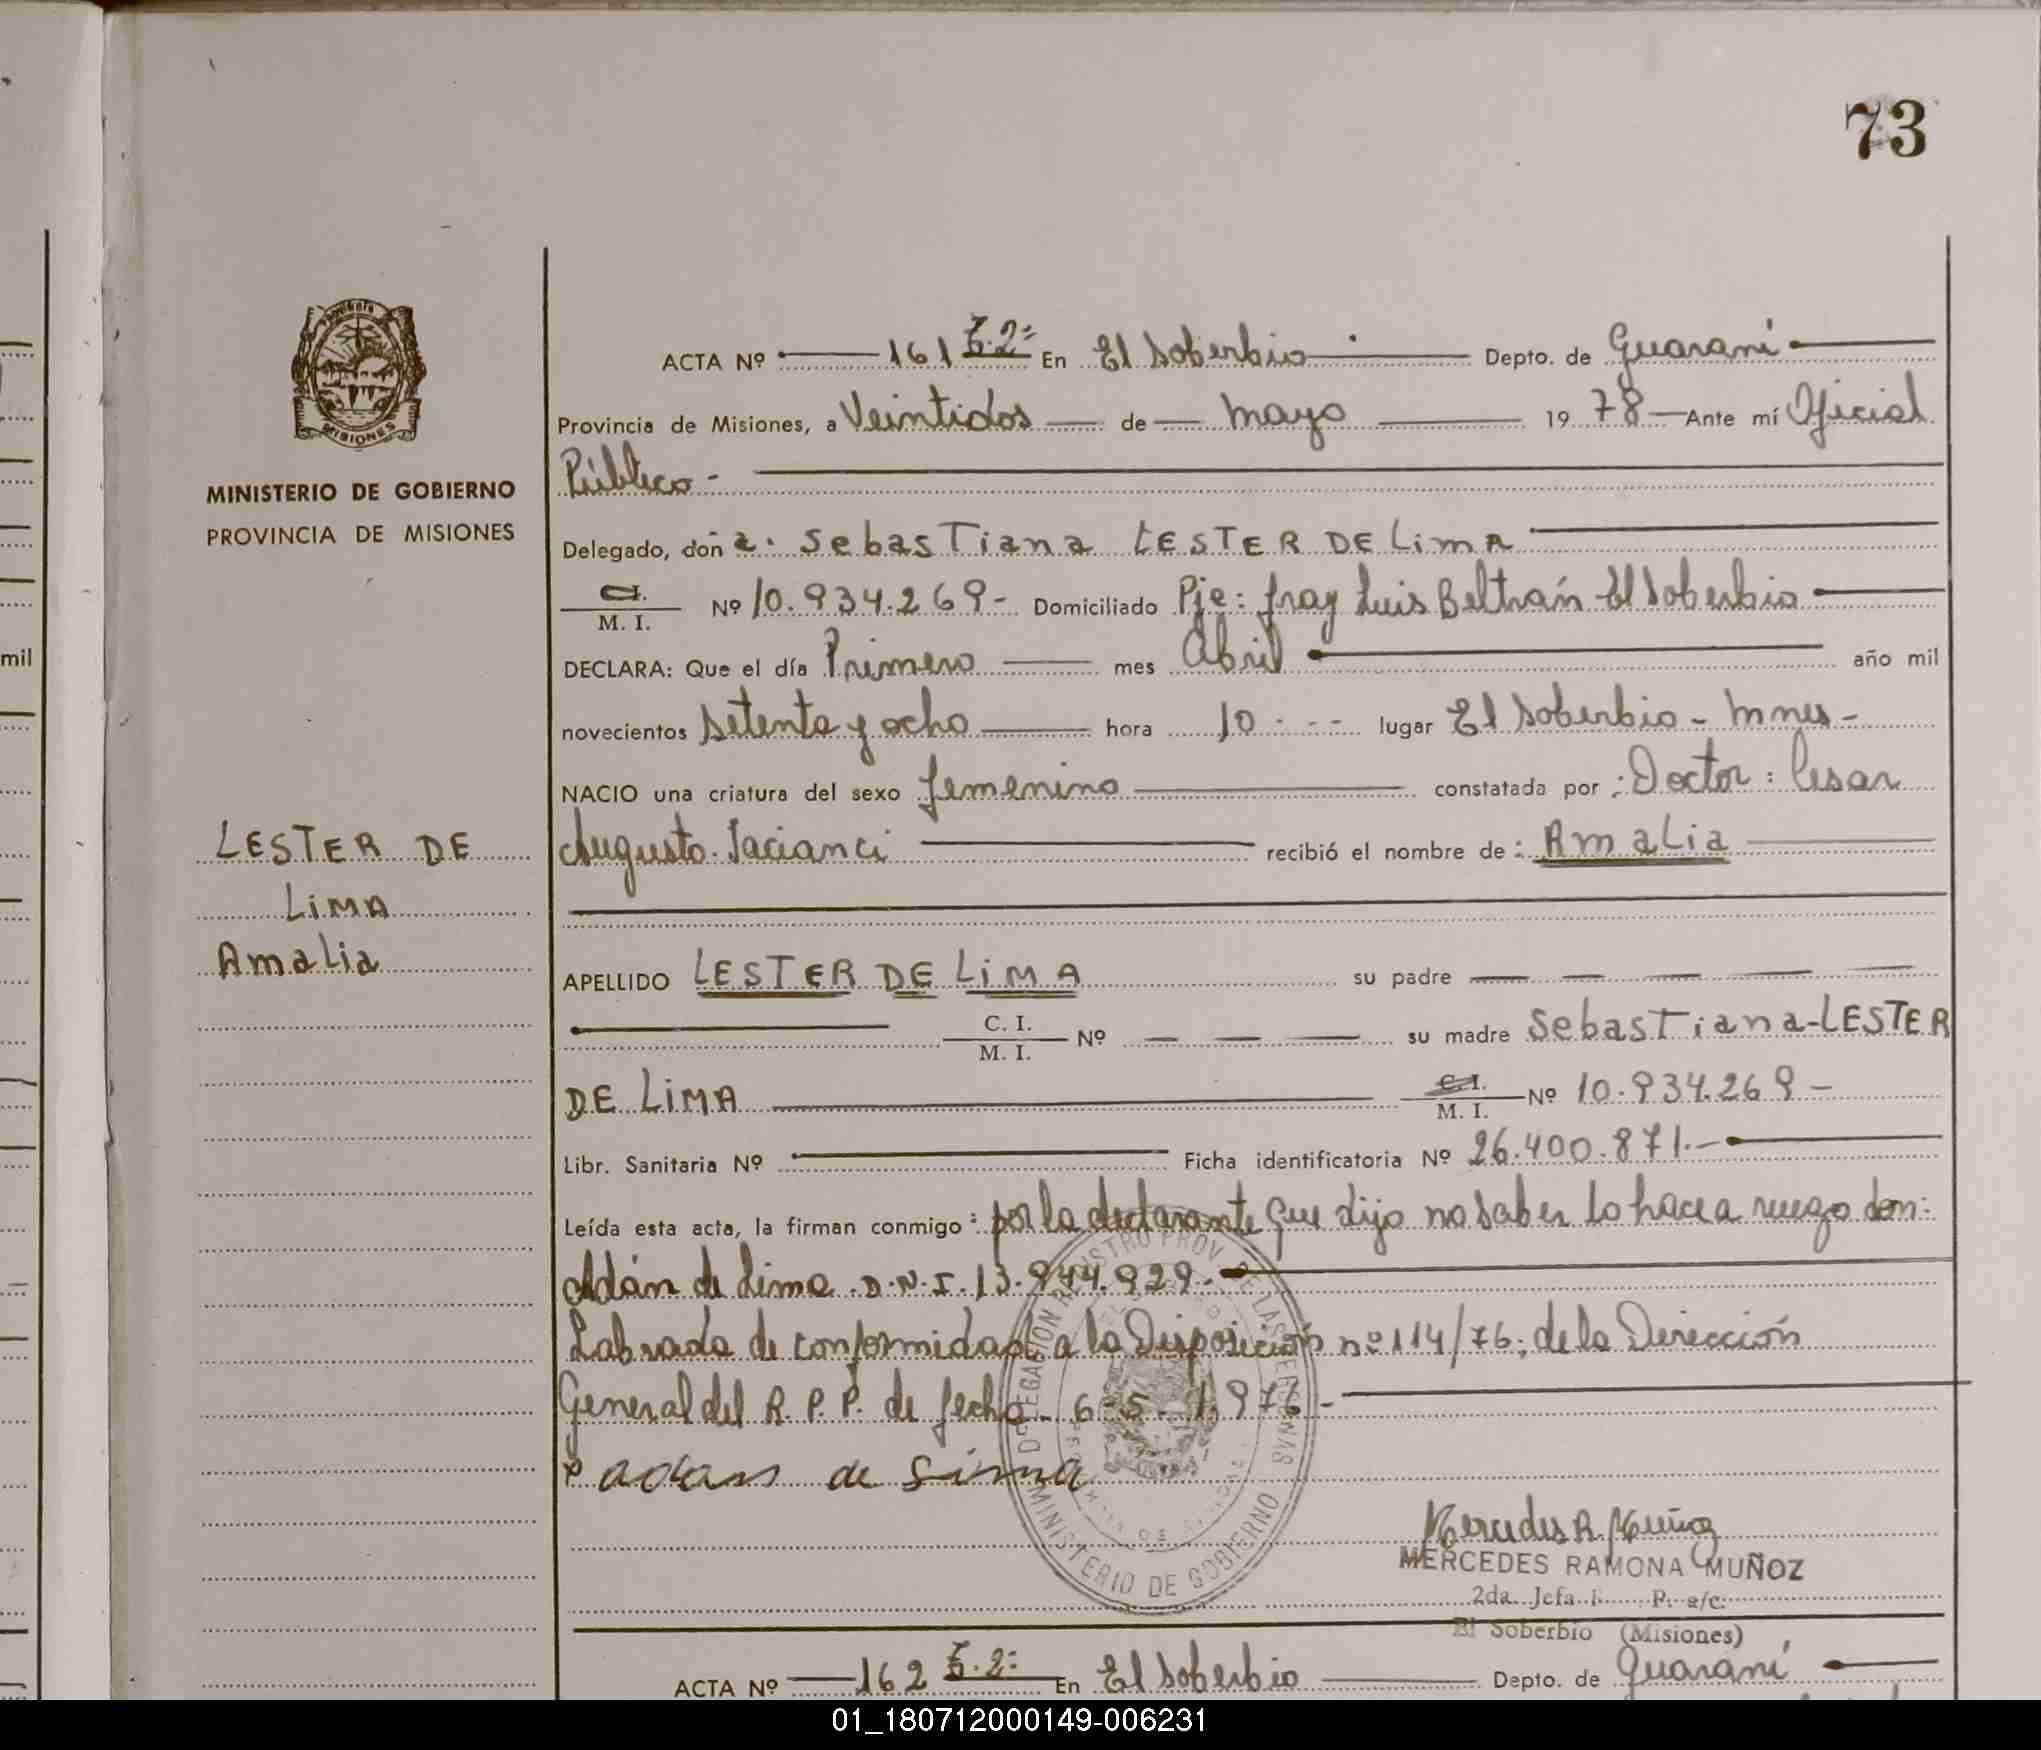 73
PROVINCIA
MISIONES
MINISTERIO DE GOBIERNO
PROVINCIA DE MISIONES
LESTER DE
LiMA
Amalia
mil
ACTA Nº 161 T.2º En El Soberbio Depto. de Guaraní
Provincia de Misiones, a Veintidos de mayo 1978 Ante mí Oficial
Público -
Delegado, don a. SebasTiana LESTER DE LimA
C.I. / M. I. Nº 10.934.269- Domiciliado Pje: fray Luis Beltrán El Soberbio
DECLARA: Que el día Primero mes Abril año mil
novecientos Setenta y ocho hora 10 - - - lugar El Soberbio - Mnes -
NACIO una criatura del sexo femenino constatada por : Doctor : Cesar
Augusto Sacianci recibió el nombre de : Amalia
APELLIDO LESTER DE LiMA su padre
C. I. / M. I. Nº su madre SebasTiana-LESTER
DE LiMA C.I. / M. I. Nº 10.934.269 -
Libr. Sanitaria Nº Ficha identificatoria Nº 26.400.871.-
Leída esta acta, la firman conmigo : por la declarante que dijo no saber lo hace a ruego don:
Adán de Lima D.N.I. 13.944.929.-
Labrada de conformidad a la Disposición nº 114/76; de la Dirección
General del R. P. P. de fecha 6-5-1.976-
adan de Lima
DELEGACION REGISTRO PROV. DE LAS PERSONAS
MINISTERIO DE GOBIERNO
Mercedes R. Muñoz
MERCEDES RAMONA MUÑOZ
2da. Jefa P. a/c.
El Soberbio (Misiones)
ACTA Nº 162 T.2º En El Soberbio Depto. de Guaraní
01_180712000149-006231